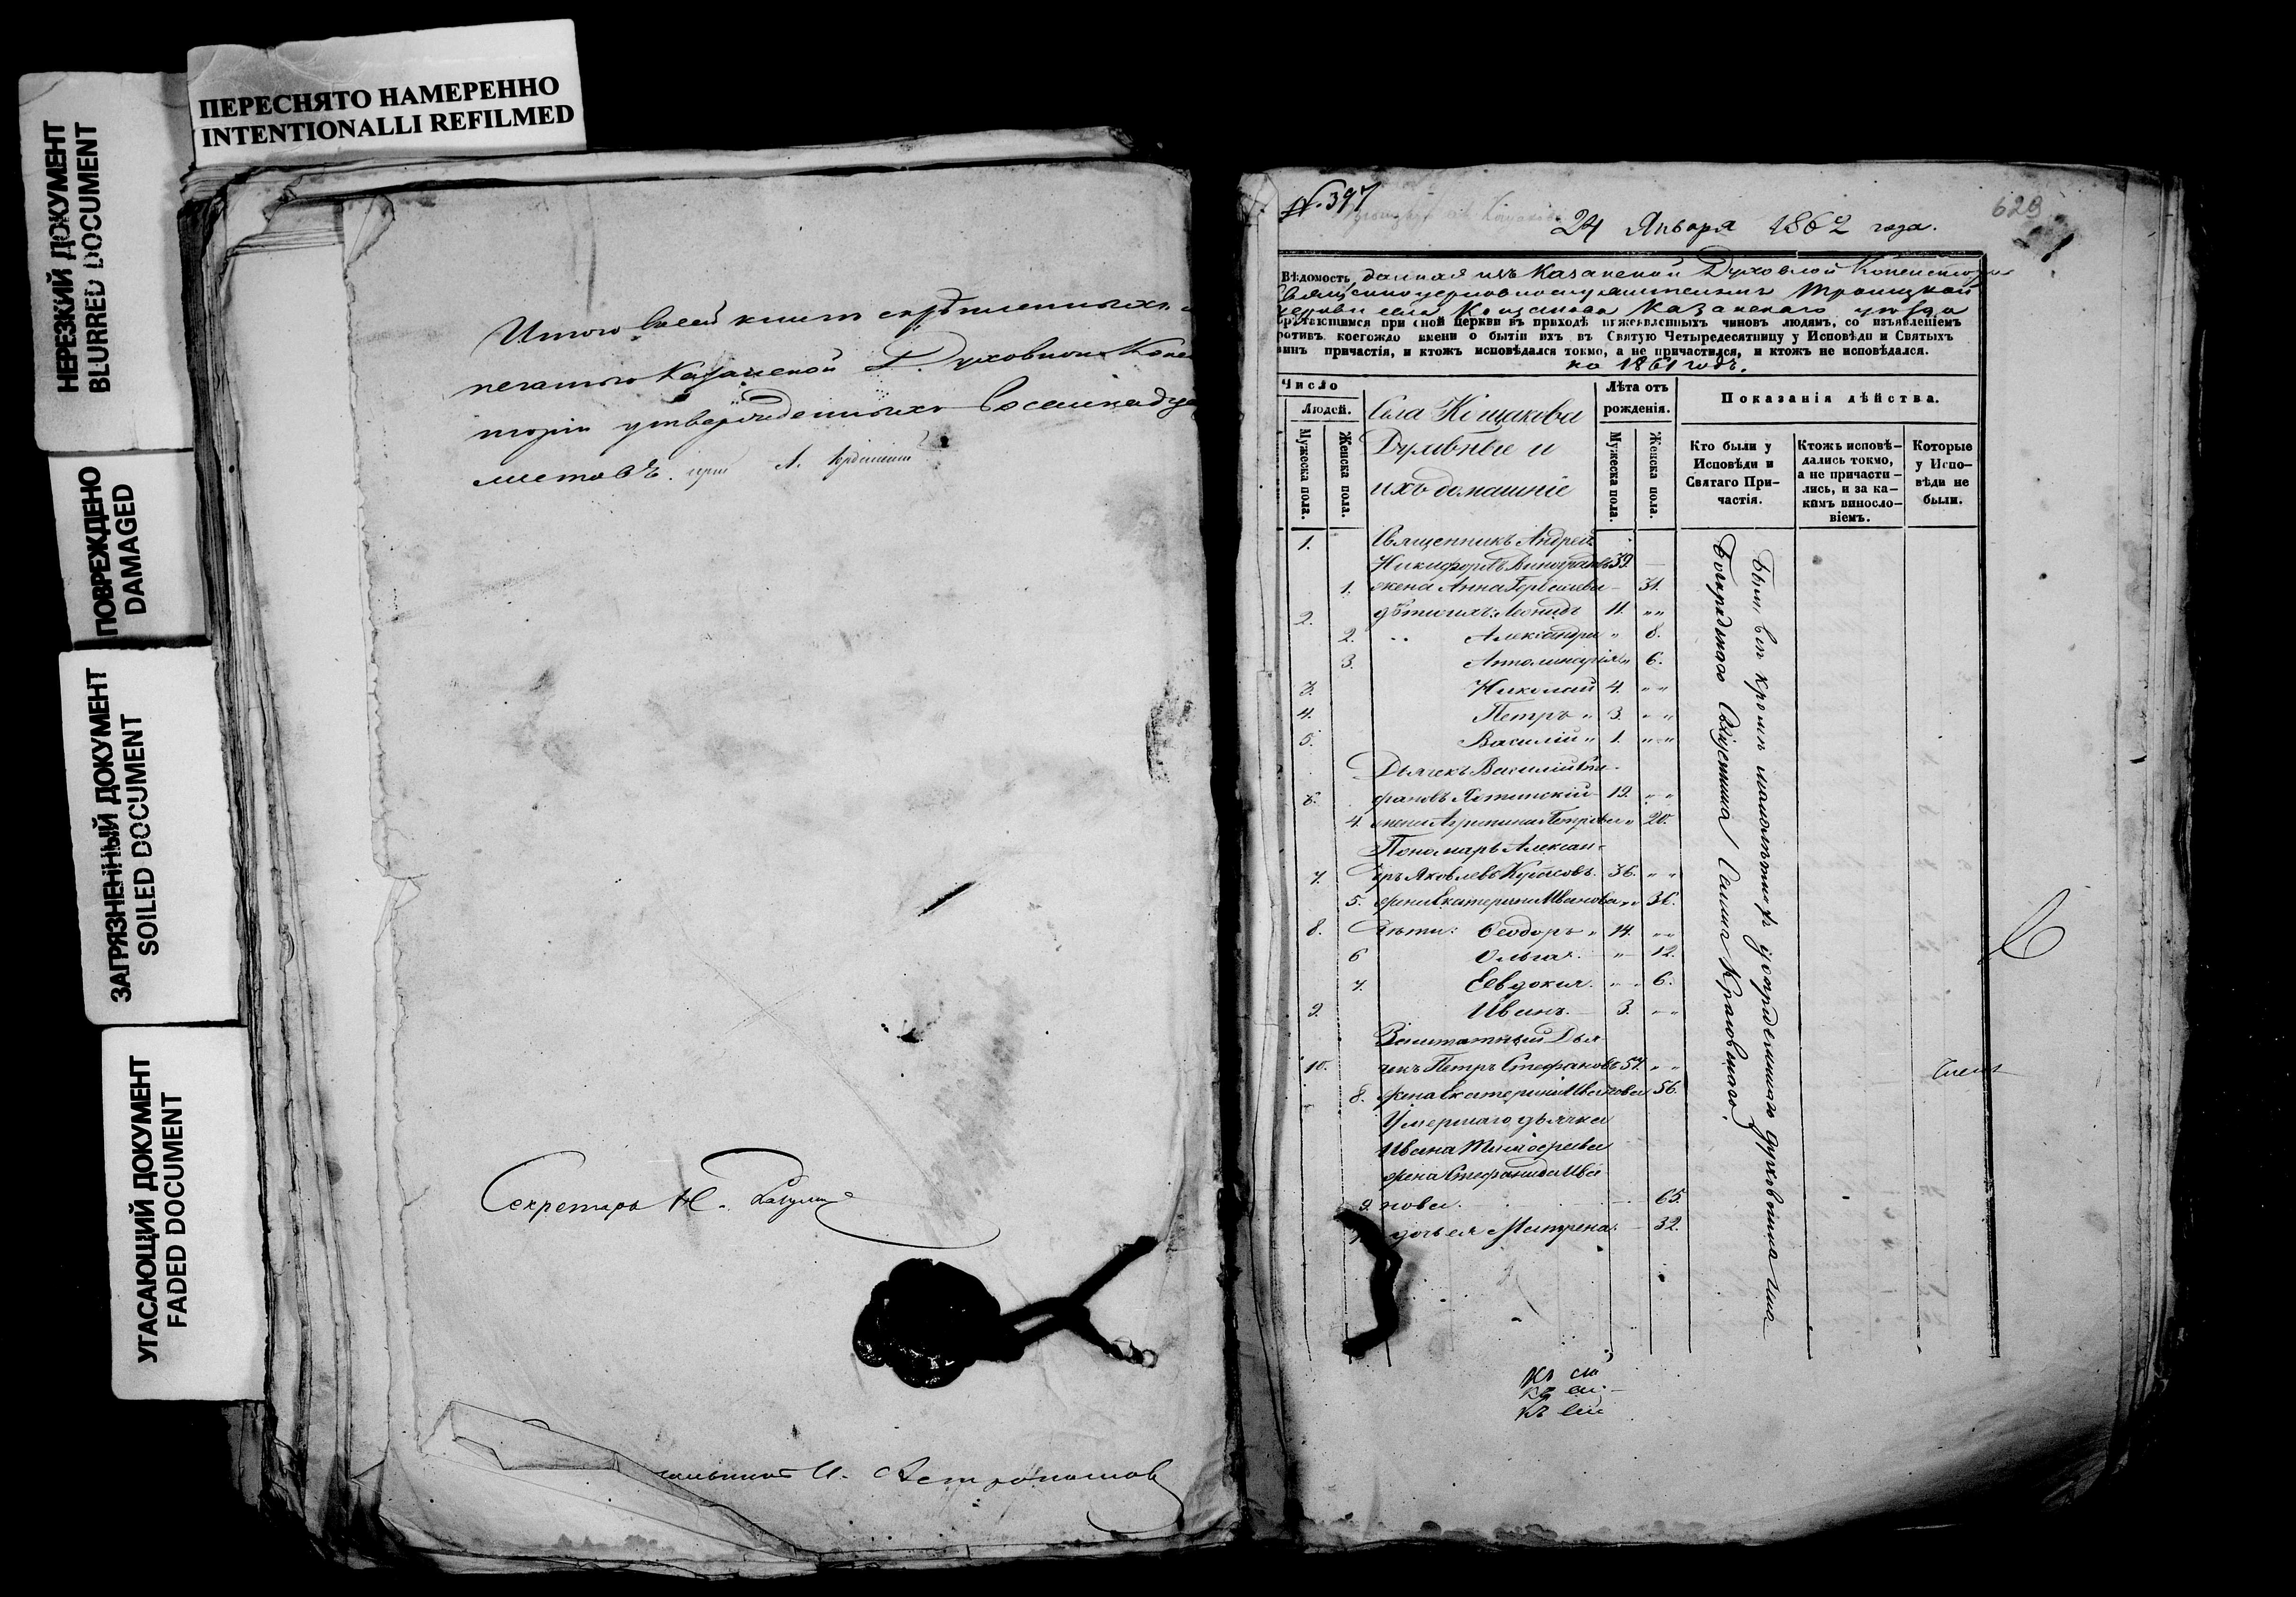 ПЕРЕСНЯТО НАМЕРЕННО
INTENTIONALLI REFILMED
НЕРЕЗКИЙ ДОКУМЕНТ
BLURRED DOCUMENT
ПОВРЕЖДЕНО
DAMAGED
ЗАГРЯЗНЕННЫЙ ДОКУМЕНТ
SOILED DOCUMENT
УГАСАЮЩИЙ ДОКУМЕНТ
FADED DOCUMENT
Итого всей книги скрѣпленныхъ
печатью Казанской Духовной Конси
торіи утвержденныхъ восемнадца
листовъ.
Секретарь Н.
И.
N. 397
629
24 Января 1862 года.
Вѣдомость данная изъ Казанской Духовной Консисторіи
Священноцерковнослужителямъ Троицкой
Церкви села Кощакова Казанскаго уѣзда
обрѣтающимся при оной церкви въ приходѣ нижеявленныхъ чиновъ людямъ, со изъявленіемъ
противъ коегождо имени о бытіи ихъ въ Святую Четыредесятницу у Исповѣди и Святыхъ
Таинъ причастія, и ктожъ исповѣдался токмо, а не причастился, и ктожъ не исповѣдался.
на 1861 годъ.
Число
Людей.
Мужеска пола.
Женска пола.
Села Кощакова
Духовные и
ихъ домашніе
Лѣта отъ
рожденія.
Мужеска пола.
Женска пола.
Показанія дѣйства.
Кто были у
Исповѣди и
Святаго При-
частія.
Ктожъ исповѣ-
дались токмо,
а не причасти-
лись, и за ка-
кимъ винослo-
віемъ.
Которые
у Испо-
вѣди не
были.
1. Священникъ Андрей
Никифоровъ Виноградовъ 39.
1. жена Анна 31.
2. дѣти ихъ: Леонидъ 11. " "
2. Александра " 8.
3. Апполинарія " 6.
3. Николай 4. " "
4. Петръ " 3. " "
5. Василій " 1. " "
Дьячекъ Василій Сте-
6. фановъ 19. " "
4. жена Агрипина Петрова " 20.
Пономарь Алексан-
7. дръ Яковлевъ 36. " "
5. жена Екатерина Иванова " 36.
8. Дѣти: Ѳеодоръ " 14. " "
6 Ольга. " 12.
7. Евдокия. " 6.
9. Иванъ. 3. " "
Заштатный Дья
10. чекъ Петръ Стефановъ 57. " "
8. жена Екатерина Иванова 56.
Умершаго дьячка
Ивана Тимофеева
жена Стефанида Ива
9. нова. 65.
дочь ея Матрена. 32.
Были всѣ кромѣ малолѣтнихъ у опредѣленнаго духовника
Священника